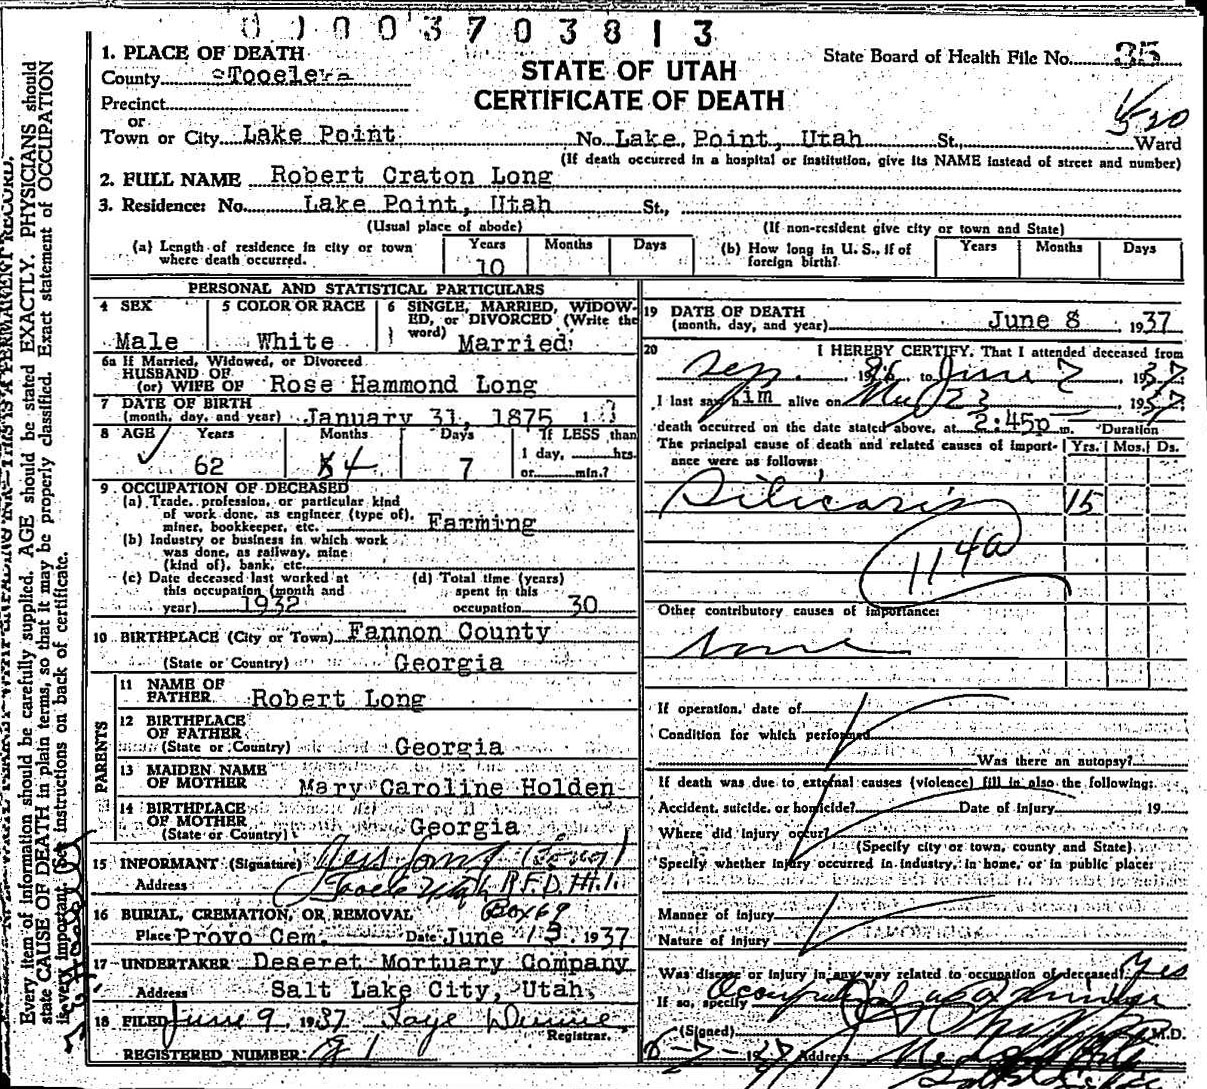 0 1 0 0 3 7 0 3 8 1 3
1. PLACE OF DEATH
County
STATE OF UTAH
CERTIFICATE OF DEATH
State Board of Health File No. 35
Precinct
or
Town or City Lake Point No. Lake Point, Utah St., Ward
(If death occurred in a hospital or institution, give its NAME instead of street and number)
2. FULL NAME Robert Craton Long
3. Residence: No. Lake Point, Utah St.,
(Usual place of abode) (If non-resident give city or town and State)
(a) Length of residence in city or town where death occurred. Years 10 Months Days
(b) How long in U. S., if of foreign birth? Years Months Days
PERSONAL AND STATISTICAL PARTICULARS
4 SEX Male
5 COLOR OR RACE White
6 SINGLE, MARRIED, WIDOWED, or DIVORCED (Write the word) Married
6a If Married, Widowed, or Divorced
HUSBAND OF
(or) WIFE OF Rose Hammond Long
7 DATE OF BIRTH
(month, day, and year) January 31, 1875
8 AGE Years 62 Months 4 Days 7 If LESS than 1 day, hrs. or min.?
9 OCCUPATION OF DECEASED
(a) Trade, profession, or particular kind
of work done, as engineer (type of),
miner, bookkeeper, etc. Farming
(b) Industry or business in which work
was done, as railway, mine
(kind of), bank, etc.
(c) Date deceased last worked at this occupation (month and year) 1932
(d) Total time (years) spent in this occupation 30
10 BIRTHPLACE (City or Town) Fannon County
(State or Country) Georgia
PARENTS
11 NAME OF
FATHER Robert Long
12 BIRTHPLACE
OF FATHER
(State or Country) Georgia
13 MAIDEN NAME
OF MOTHER Mary Caroline Holden
14 BIRTHPLACE
OF MOTHER
(State or Country) Georgia
15 INFORMANT (Signature) Long (Son)
Address Tooele Utah R.F.D. #1.
Box 69
16 BURIAL, CREMATION, OR REMOVAL
Place Provo Cem. Date June 13, 1937
17 UNDERTAKER Deseret Mortuary Company
Address Salt Lake City, Utah.
18 FILED June 9, 1937 Faye
Registrar.
REGISTERED NUMBER
19 DATE OF DEATH
(month, day, and year) June 8 1937
20 I HEREBY CERTIFY, That I attended deceased from
Sep. 1936, to June 7, 1937
I last saw him alive on 23 1937
death occurred on the date stated above, at 2:45p m. Duration
The principal cause of death and related causes of importance were as follows: Yrs. Mos. Ds.
Silicosis 15
114a
Other contributory causes of importance:
None
If operation, date of
Condition for which performed
Was there an autopsy?
If death was due to external causes (violence) fill in also the following:
Accident, suicide, or homicide? Date of injury 19
Where did injury occur?
(Specify city or town, county and State)
Specify whether injury occurred in industry, in home, or in public place:
Manner of injury
Nature of injury
Was disease or injury in any way related to occupation of deceased? Yes
If so, specify Occupational as a
(Signed) M.D.
Address
Every item of information should be carefully supplied. AGE should be stated EXACTLY. PHYSICIANS should
state CAUSE OF DEATH in plain terms, so that it may be properly classified. Exact statement of OCCUPATION
is very important. See instructions on back of certificate.